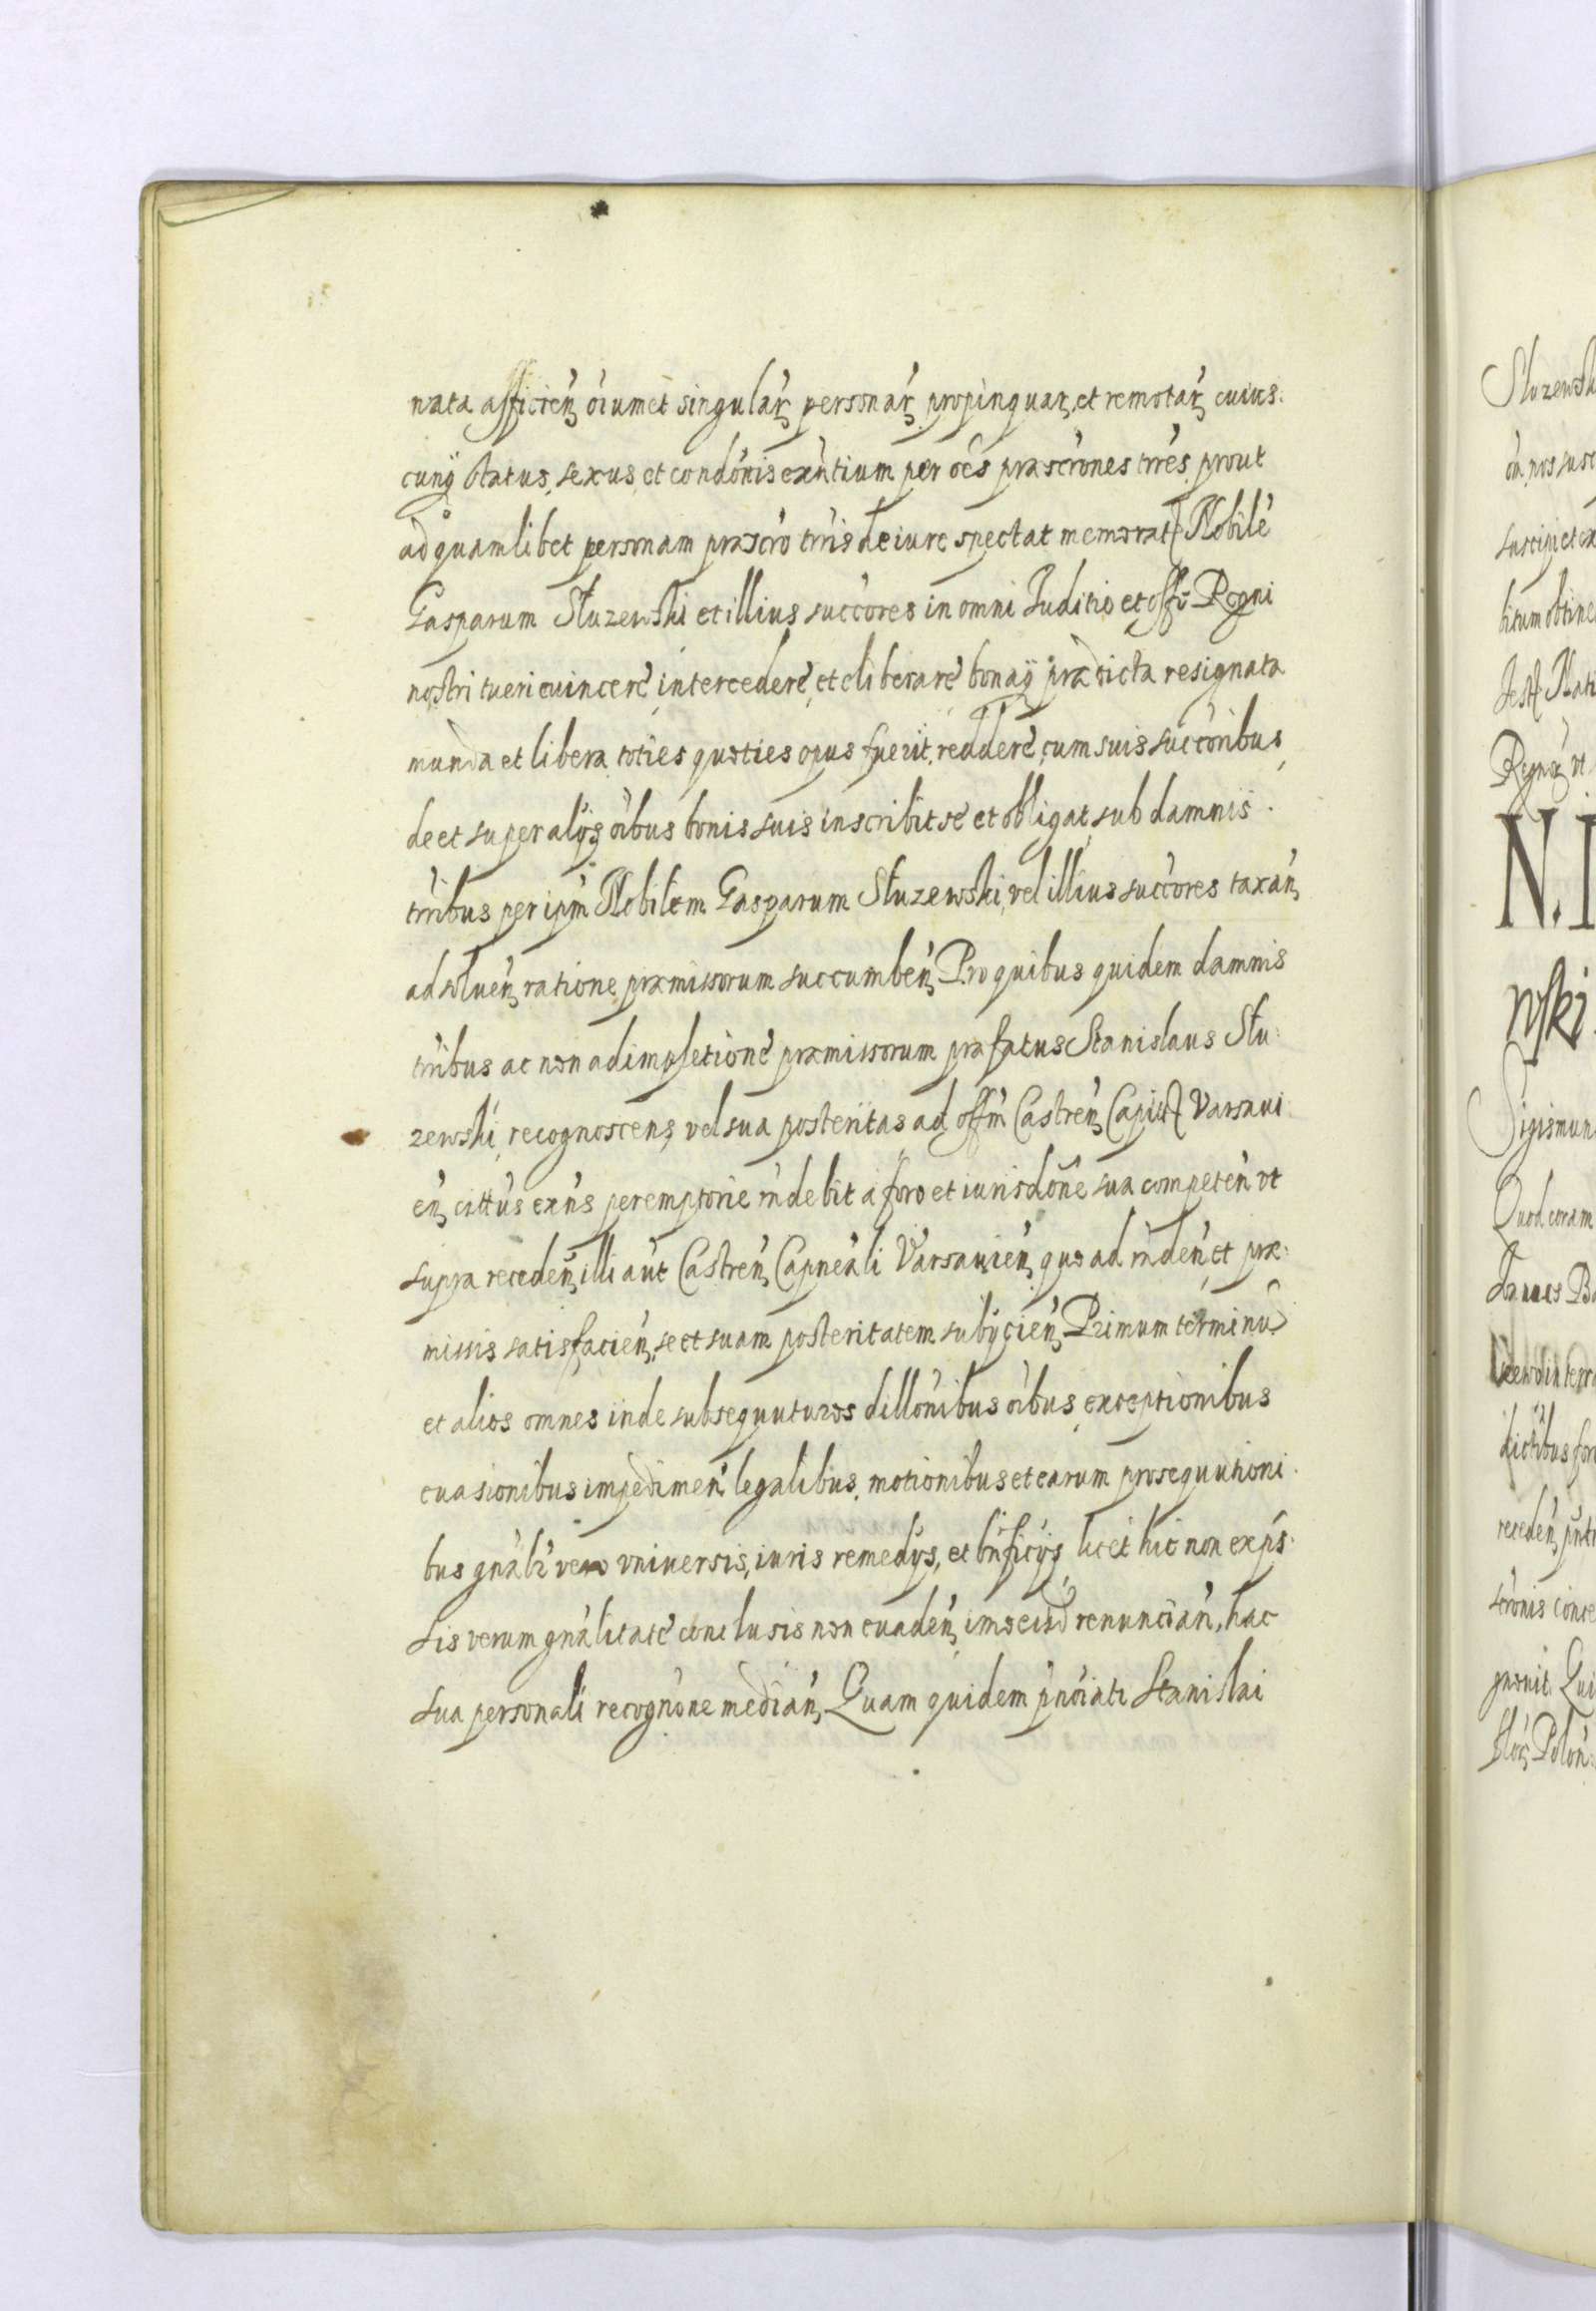 nata afficien oium et singular personar propinquar, et remotar cuius:
cunq status, sexus, et condonis exntium per oes præscrones trres, prout
ad quamlibet personam præscro trris de iure spectat memorat Nobile
Gasparum Słuzewski et illius succores in omni Iuditio et offo Regni
nostri tueri euincere, intercedere, et eliberare bonaq prædicta resignata
munda et libera, toties quoties opus fuerit, reddere, cum suis succoribus,
de et super alijs oibus bonis suis inscribit se et obligat, sub damnis
trribus per ipm Nobilem Gasparum Słuzewski, vel illius succores taxan
ad soluen ratione præmissorum succumben Pro quibus quidem damnis
trribus ac non adimpletione præmissorum præfatus Stanislaus Słu:
zewski, recognoscens, vel sua posteritas ad offm Castren Capit Varsaui:
en cittus exns peremptorie rndebit a foro et iurisdone sua competen vt
supra receden, illi aut Castren Capneali Varsauien quo ad rnden, et præ:
missis satisfacien, se et suam posteritatem subijcien Primum terminu
et alios omnes inde subsequuturos dillonibus oibus, exceptionibus
euasionibus impedimen legalibus, motionibus et earum prosequutioni:
bus gnalr vero vniuersis, iuris remedijs, et bnficijs, licet hic non exps:
sis verum gnalitate conclusis non euaden, imo eisd renuncian, hac
sua personali recognone median, Quam quidem pnoiati Stanislai
Słuzewsk
N. I
wski.
Sigismun
Quod coram